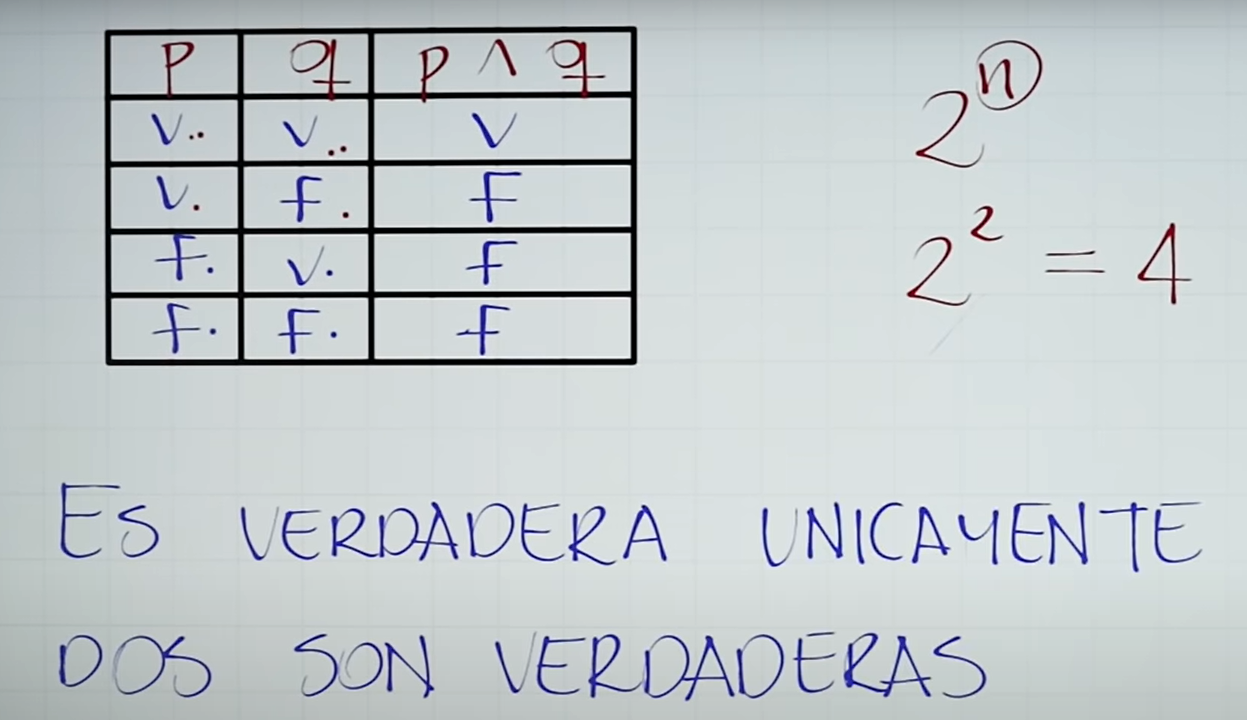 p q p ∧ q
V.. V.. V
V. F. F
F. V. F
F. F. F
2ⁿ
2² = 4
ES VERDADERA UNICAMENTE
DOS SON VERDADERAS